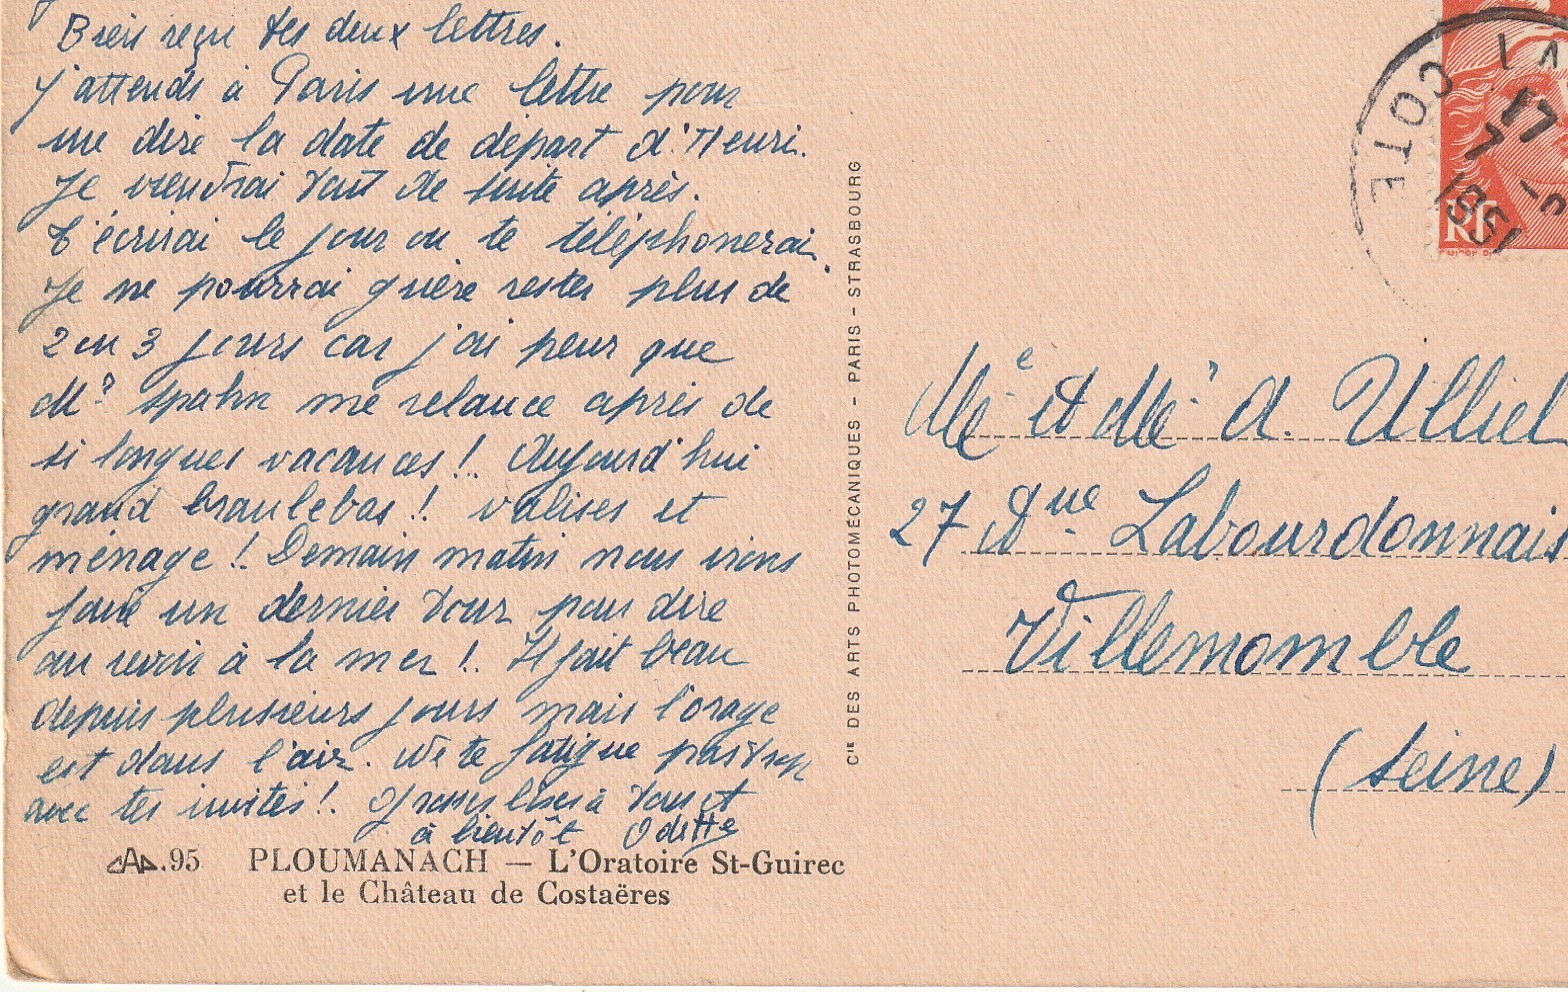 Bien reçu tes deux lettres.
J'attends à Paris une lettre pour
me dire la date de départ d'Henri.
Je viendrai tout de suite après.
T'écrirai le jour ou te téléphonerai.
Je ne pourrai guère rester plus de
2 ou 3 jours car j'ai peur que
Mr Spahn me relance après de
si longues vacances ! Aujourd'hui
grand branlebas ! valises et
ménage ! Demain matin nous irons
faire un dernier tour pour dire
au revoir à la mer ! Il fait beau
depuis plusieurs jours mais l'orage
est dans l'air. Ne te fatigue pas trop
avec tes invités ! Grosses bises à tous et
à bientôt Odette
CAP.95 PLOUMANACH — L'Oratoire St-Guirec
et le Château de Costaërès
CIE DES ARTS PHOTOMÉCANIQUES - PARIS - STRASBOURG
COTE
LA
17
1951
RF
et A. Ulliel
27 Labourdonnais
Villemomble
(Seine)